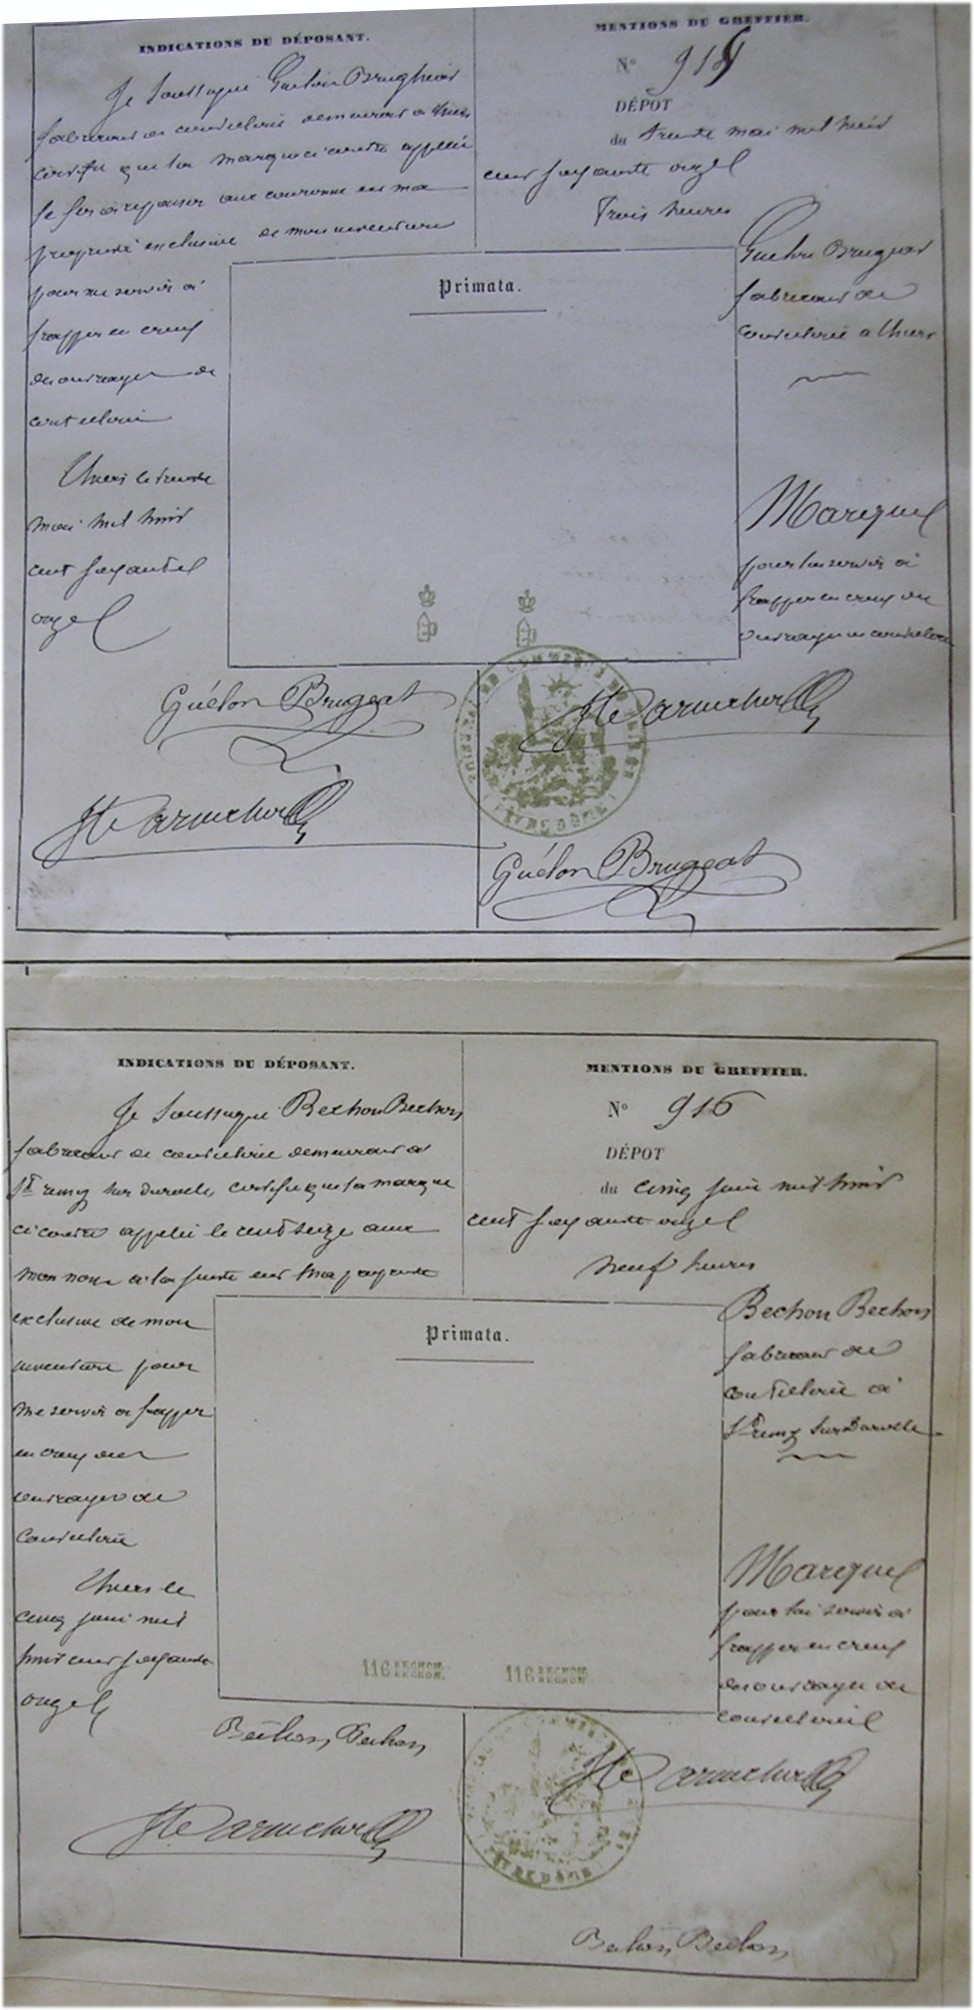 INDICATIONS DU DÉPOSANT.
Je Soussigné Guelon Brugheat
fabricant de coutellerie demeurant a thiers
certifie que la marque ci contre appelée
le fer à repasser aux couronne est ma
propriété exclusive de mon invention
pour me servir a
frapper en creux
des ouvrages de
coutellerie
Thiers le trente
mai mil huit
cent soixante
onze
MENTIONS DU GREFFIER.
N°
DÉPOT
du trente mai mil huit
cent soixante onze
Trois heures
Guelon Brugeat
fabricant de
coutellerie a thiers
Marque
pour lui servir a
frapper en creux des
ouvrages en coutellerie
Primata.
Guélon Brugeat
Guélon Brugeat
INDICATIONS DU DÉPOSANT.
Je Soussigné Bechon Bechon
fabricant de coutellerie demeurant a
St remy sur durolle, certifie que la marque
ci contre appelée le cent seize avec
mon nom a la suite est ma propriété
exclusive de mon
invention pour
me servir a frapper
en creux des
ouvrages de
Coutellerie
Thiers le
cinq juin mil
huit cent soixante
onze
MENTIONS DU GREFFIER.
N° 916
DÉPOT
du cinq juin mil huit
cent soixante onze
neuf heures
Bechon Bechon
fabricant de
coutellerie a
St remy Sur Durolle
Marque
pour lui servir a
frapper en creux
des ouvrages de
coutellerie
Primata.
116 BECHON. BECHON.
116 BECHON. BECHON.
Bechon Bechon
Bechon Bechon